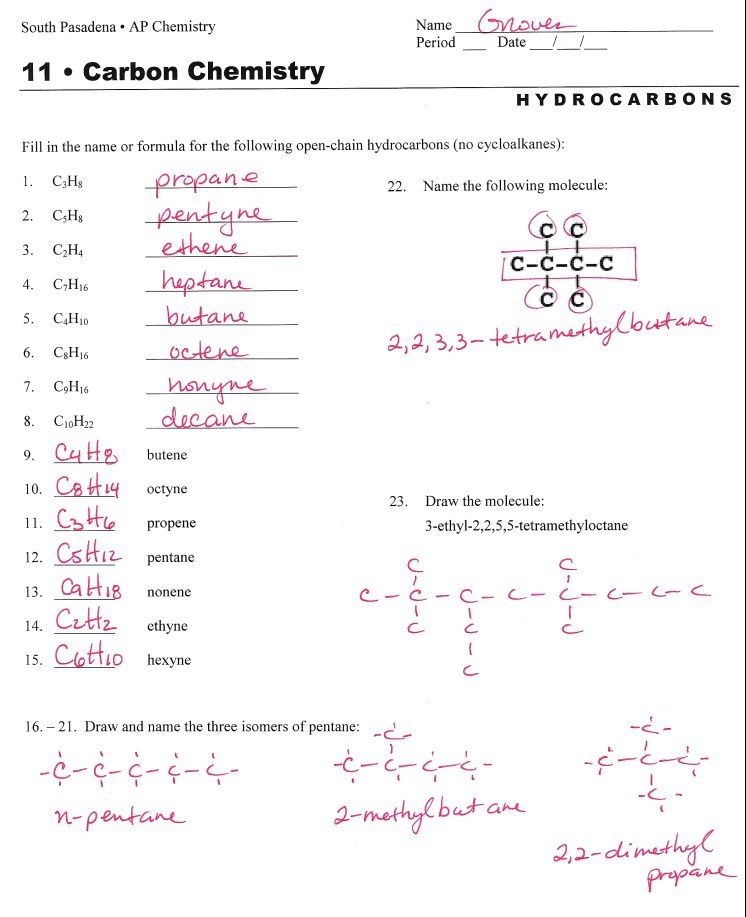 South Pasadena • AP Chemistry
Name Groves
Period ___ Date ___/___/___
11 • Carbon Chemistry
HYDROCARBONS
Fill in the name or formula for the following open-chain hydrocarbons (no cycloalkanes):
1. C₃H₈ propane
2. C₅H₈ pentyne
3. C₂H₄ ethene
4. C₇H₁₆ heptane
5. C₄H₁₀ butane
6. C₈H₁₆ octene
7. C₉H₁₆ nonyne
8. C₁₀H₂₂ decane
9. C₄H₈ butene
10. C₈H₁₄ octyne
11. C₃H₆ propene
12. C₅H₁₂ pentane
13. C₉H₁₈ nonene
14. C₂H₂ ethyne
15. C₆H₁₀ hexyne
22. Name the following molecule:
C C
C-C-C-C
C C
2,2,3,3-tetramethylbutane
23. Draw the molecule:
3-ethyl-2,2,5,5-tetramethyloctane
C C
C-C-C-C-C-C-C-C
C C C
C
16. – 21. Draw and name the three isomers of pentane:
-C-C-C-C-C-
n-pentane
-C-
-C-C-C-C-
2-methylbutane
-C-
-C-C-C-
-C-
2,2-dimethyl
propane